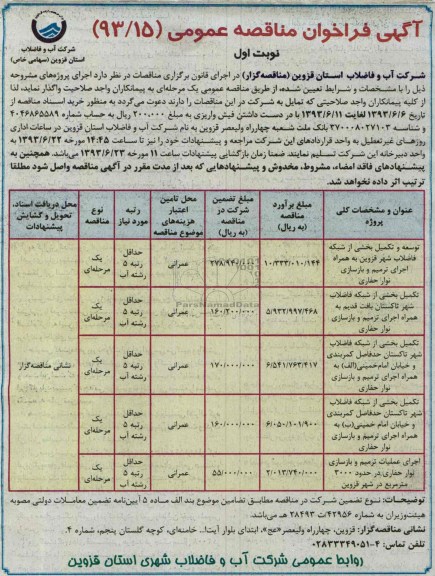 آگهی فراخوان مناقصه عمومی (۹۳/۱۵)
نوبت اول
شرکت آب و فاضلاب
استان قزوین (سهامی خاص)
شرکت آب و فاضلاب استان قزوین (مناقصه‌گزار) در اجرای قانون برگزاری مناقصات در نظر دارد اجرای پروژه‌های مشروحه
ذیل را با مشخصات و شرایط تعیین شده، از طریق مناقصه عمومی یک مرحله‌ای به پیمانکاران واجد صلاحیت واگذار نماید، لذا
از کلیه پیمانکاران واجد صلاحیتی که تمایل به شرکت در این مناقصات را دارند دعوت می‌گردد به منظور خرید اسناد مناقصه از
تاریخ ۱۳۹۳/۶/۶ لغایت ۱۳۹۳/۶/۱۱ با در دست داشتن فیش واریزی به مبلغ ۲۰۰،۰۰۰ ریال به حساب شماره ۴۰۴۶۸۶۵۵۸۹
و شناسه ۳۷۰۰۰۸۰۲۷۱۰۳ بانک ملت شعبه چهارراه ولیعصر قزوین به نام شرکت آب و فاضلاب استان قزوین در ساعات اداری
روزهای غیرتعطیل به واحد قراردادهای این شرکت مراجعه و پیشنهادات خود را نیز تا ساعت ۱۴:۴۵ مورخه ۱۳۹۳/۶/۲۲ به
واحد دبیرخانه این شرکت تسلیم نمایند. ضمنا زمان بازگشایی پیشنهادات ساعت ۱۱ مورخه ۱۳۹۳/۶/۲۳ می‌باشد. همچنین به
پیشنهادهای فاقد امضاء، مشروط، مخدوش و پیشنهادهایی که بعد از مدت مقرر در آگهی مناقصه واصل شود مطلقا
ترتیب اثر داده نخواهد شد.
عنوان و مشخصات کلی پروژه | مبلغ برآورد مناقصه (به ریال) | مبلغ تضمین شرکت در مناقصه (به ریال) | محل تامین اعتبار هزینه‌های موضوع مناقصه | رتبه مورد نیاز | نوع مناقصه | محل دریافت اسناد، تحویل و گشایش پیشنهادات
توسعه و تکمیل بخشی از شبکه فاضلاب شهر قزوین به همراه اجرای ترمیم و بازسازی نوار حفاری | ۱۰/۳۳۳/۰۱۰/۱۴۴ | عمرانی | حداقل رتبه ۵ رشته آب | یک مرحله‌ای
تکمیل بخشی از شبکه فاضلاب شهر تاکستان بافت قدیم به همراه اجرای ترمیم و بازسازی نوار حفاری | ۵/۹۳۲/۹۹۷/۴۶۸ | ۱۶۰/۲۰۰/۰۰۰ | عمرانی | حداقل رتبه ۵ رشته آب | یک مرحله‌ای
تکمیل بخشی از شبکه فاضلاب شهر تاکستان حدفاصل کمربندی و خیابان امام‌خمینی(الف) به همراه اجرای ترمیم و بازسازی نوار حفاری | ۶/۵۴۱/۷۶۳/۴۱۷ | ۱۷۰/۰۰۰/۰۰۰ | عمرانی | حداقل رتبه ۵ رشته آب | یک مرحله‌ای | نشانی مناقصه‌گزار
تکمیل بخشی از شبکه فاضلاب شهر تاکستان حدفاصل کمربندی و خیابان امام خمینی(ب) به همراه اجرای ترمیم و بازسازی نوار حفاری | ۶/۰۵۰/۱۰۱/۹۰۰ | ۱۶۰/۰۰۰/۰۰۰ | عمرانی | حداقل رتبه ۵ رشته آب | یک مرحله‌ای
اجرای عملیات ترمیم و بازسازی نوار حفاری در حدود ۳۰۰۰ مترمربع در شهر قزوین | ۲/۰۱۳/۷۴۰/۰۰۰ | ۵۵/۰۰۰/۰۰۰ | عمرانی | حداقل رتبه ۵ رشته آب | یک مرحله‌ای
توضیحات: نوع تضمین شرکت در مناقصه مطابق تضامین موضوع بند الف ماده ۵ آیین‌نامه تضمین معاملات دولتی مصوبه
هیئت‌وزیران به شماره ۴۲۹۵۶/ت ۲۸۴۹۳ هـ می‌باشد.
نشانی مناقصه‌گزار: قزوین، چهارراه ولیعصر«عج»، ابتدای بلوار آیت‌ا... خامنه‌ای، کوچه گلستان پنجم، شماره ۴
تلفن تماس: ۴-۰۲۸۳۳۳۴۹۰۵۱
روابط عمومی شرکت آب و فاضلاب شهری استان قزوین
ParsNamadData